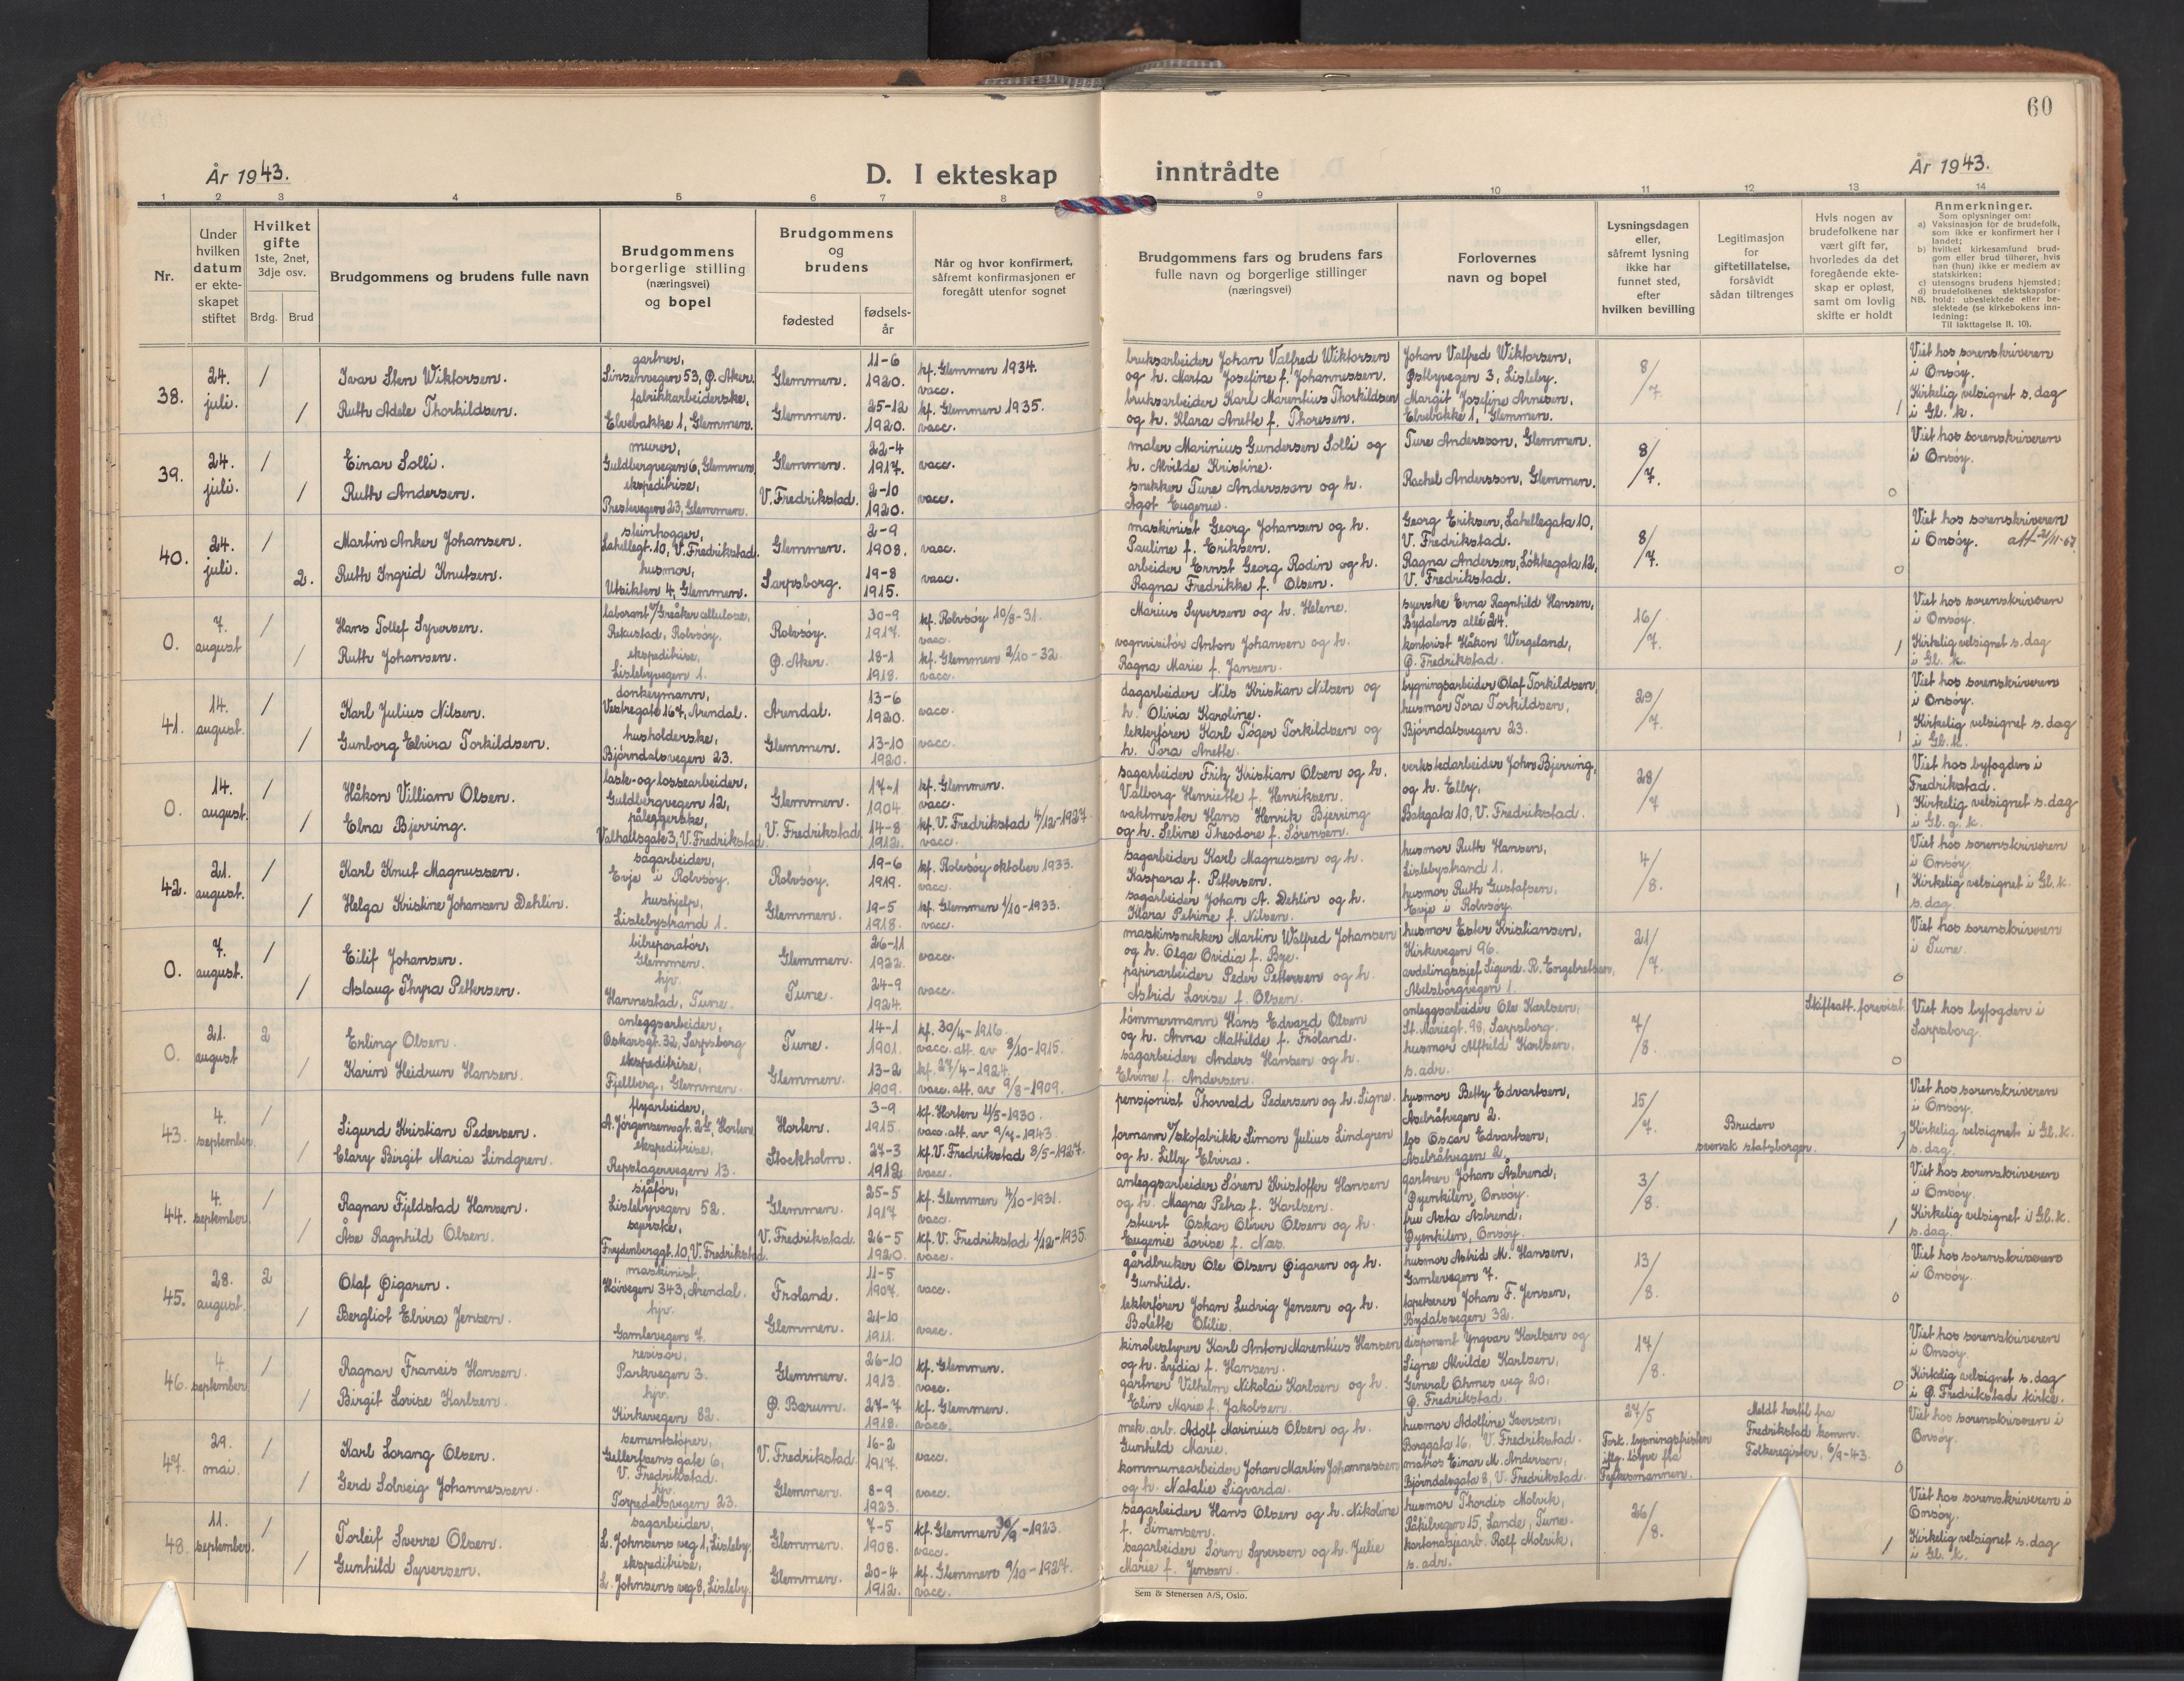 60
År 1943.
D. I ekteskap inntrådte
År 1943.
1 2 3 4 5 6 7 8 9 10 11 12 13 14
Nr.
Under
hvilken
datum
er ekte-
skapet
stiftet
Hvilket
gifte
1ste, 2net,
3dje osv.
Brdg. Brud
Brudgommens og brudens fulle navn
Brudgommens
borgerlige stilling
(næringsvei)
og bopel
Brudgommens
og
brudens
fødested
fødsels-
år
Når og hvor konfirmert,
såfremt konfirmasjonen er
foregått utenfor sognet
Brudgommens fars og brudens fars
fulle navn og borgerlige stillinger
(næringsvei)
Forlovernes
navn og bopel
Lysningsdagen
eller,
såfremt lysning
ikke har
funnet sted,
efter
hvilken bevilling
Legitimasjon
for
giftetillatelse,
forsåvidt
sådan tiltrenges
Hvis nogen av
brudefolkene har
vært gift før,
hvorledes da det
foregående ekte-
skap er opløst,
samt om lovlig
skifte er holdt
Anmerkninger.
Som oplysninger om:
a) Vaksinasjon for de brudefolk,
som ikke er konfirmert her i
landet;
b) hvilket kirkesamfund brud-
gom eller brud tilhører, hvis
han (hun) ikke er medlem av
statskirken;
c) utensogns brudens hjemsted;
d) brudefolkenes slektskapsfor-
NB. hold: ubeslektede eller be-
slektede (se kirkebokens inn-
ledning:
Til iakttagelse II. 10).
38.
24.
juli.
1
1
Ivar Sten Wiktorsen.
Ruth Adele Thorkildsen.
gartner,
Sinsenvegen 53, Ø. Aker.
fabrikkarbeiderske,
Elvebakke 1, Glemmen.
Glemmen.
Glemmen.
11-6
1920.
25-12
1920.
kf. Glemmen 1934.
vacc.
kf. Glemmen 1935.
vacc.
bruksarbeider Johan Valfred Wiktorsen
og h. Marta Josefine f. Johannessen.
bruksarbeider Karl Marentius Thorkildsen
og h. Klara Anette f. Thoresen.
Johan Valfred Wiktorsen,
Østbyvegen 3, Lisleby.
Margit Josefine Arnesen,
Elvebakke 1, Glemmen.
8/7.
1
Viet hos sorenskriveren
i Onsøy.
Kirkelig velsignet s. dag
i Gl. k.
39.
24.
juli.
1
1
Einar Solli.
Ruth Andersen.
murer,
Guldbergvegen 6, Glemmen
ekspeditrise,
Prestevegen 23, Glemmen.
Glemmen.
V. Fredrikstad.
22-4
1917.
2-10
1920.
vacc.
vacc.
maler Marinius Gundersen Solli og
h. Alvilde Kristine.
snekker Ture Andersson og h.
Ågot Eugenie.
Ture Andersson, Glemmen.
Rachel Andersson, Glemmen.
8/7.
0
Viet hos sorenskriveren
i Onsøy.
40.
24.
juli.
1
2.
Martin Anker Johansen.
Ruth Ingrid Knutsen.
steinhogger,
Lahellegt. 10, V. Fredrikstad.
husmor,
Utsikten 4, Glemmen.
Glemmen.
Sarpsborg.
2-9
1908.
19-8
1915.
vacc.
vacc.
maskinist Georg Johansen og h.
Pauline f. Eriksen.
arbeider Ernst Georg Rodin og h.
Ragna Fredrikke f. Olsen.
Georg Eriksen, Lahellegata 10,
V. Fredrikstad.
Ragna Andersen, Løkkegata 12,
V. Fredrikstad.
8/7.
0
Viet hos sorenskriveren
i Onsøy.
0.
7.
august
1
1
Hans Tollef Syversen.
Ruth Johansen.
laborant v/ Greåker cellulose,
Rekustad, Rolvsøy.
ekspeditrise,
Lislebyvegen 1.
Rolvsøy.
Ø. Aker.
30-9
1917.
18-1
1918.
kf. Rolvsøy 10/8-31.
vacc.
kf. Glemmen 2/10-32.
vacc.
Marius Syversen og h. Helene.
vognvisitør Anton Johansen og h.
Ragna Marie f. Jansen.
syerske Erna Ragnhild Hansen,
Bydalens allé 24.
kontorist Håkon Wergeland,
Ø. Fredrikstad.
16/7.
1
Viet hos sorenskriveren
i Onsøy.
Kirkelig velsignet s. dag
i Gl. k.
41.
14.
august.
1
1
Karl Julius Nilsen.
Gunborg Elvira Torkildsen.
donkeymann,
Vestregate 167, Arendal.
husholderske,
Bjørndalsvegen 23.
Arendal.
Glemmen.
13-6
1920.
13-10
1920.
vacc.
vacc.
dagarbeider Nils Kristian Nilsen og
h. Olivia Karoline.
lekterfører Karl Tøger Torkildsen og
h. Tora Anette.
bygningsarbeider Olaf Torkildsen,
husmor Tora Torkildsen,
Bjørndalsvegen 23.
29/7.
1
Viet hos sorenskriveren
i Onsøy.
Kirkelig velsignet s. dag
i Gl. k.
0.
14.
august.
1
1
Håkon Villiam Olsen.
Elna Bjerring.
laste- og lossearbeider,
Guldbergvegen 12,
påleggerske,
Valhallsgate 3, V. Fredrikstad.
Glemmen.
V. Fredrikstad
17-1
1904
14-8
1912.
kf. Glemmen.
vacc.
kf. V. Fredrikstad 4/12-1927
vacc.
sagarbeider Fritz Kristian Olsen og h.
Valborg Henriette f. Henriksen.
vaktmester Hans Henrik Bjerring
og h. Seline Theodore f. Sørensen.
verkstedarbeider John Bjerring,
og h. Elly,
Bakgata 10, V. Fredrikstad.
28/7
1
Viet hos byfogden i
Fredrikstad.
Kirkelig velsignet s. dag
i Gl. g. k.
42.
21.
august.
1
1
Karl Knut Magnussen.
Helga Kristine Johansen Dehlin.
sagarbeider,
Evje i Rolvsøy.
hushjelp,
Lislebystrand 1.
Rolvsøy.
Glemmen.
19-6
1919.
19-5
1918.
kf. Rolvsøy oktober 1933.
vacc.
kf. Glemmen 1/10-1933.
vacc.
sagarbeider Karl Magnussen og h.
Kaspara f. Pettersen.
sagarbeider Johan A. Dehlin og h.
Klara Petrine f. Nilsen.
husmor Ruth Hansen,
Lislebystrand 1.
husmor Ruth Gustafsen,
Evje i Rolvsøy.
4/8.
1
Viet hos sorenskriveren
i Onsøy.
Kirkelig velsignet i Gl. k.
s. dag.
0.
7.
august.
1
1
Eilif Johansen.
Aslaug Thyra Pettersen.
bilreparatør,
Glemmen.
hjv.
Hannestad, Tune.
Glemmen.
Tune.
26-11
1922.
24-9
1924.
vacc.
vacc.
maskinsnekker Martin Walfred Johansen
og h. Olga Ovidia f. Bye.
papirarbeider Peder Pettersen og h.
Astrid Lovise f. Olsen.
husmor Ester Kristiansen,
Kirkevegen 96.
avdelingssjef Sigurd R. Engebretsen,
Abelsborgvegen 1.
21/7.
0
Viet hos sorenskriveren
i Tune.
0.
21.
august
2
1
Erling Olsen.
Karin Heidrun Hansen.
anleggsarbeider,
Oskarsgt. 32, Sarpsborg
ekspeditrise,
Fjellberg, Glemmen.
Tune.
Glemmen.
14-1
1901.
13-2
1909.
kf. 30/4-1916.
vacc. att. av 8/10-1915.
kf. 27/4-1924.
vacc. att. av 9/8-1909.
tømmermann Hans Edvard Olsen
og h. Anna Mathilde f. Frøland.
sagarbeider Anders Hansen og h.
Elvine f. Andersen.
anleggsarbeider Ole Karlsen,
St. Mariegt. 98, Sarpsborg.
husmor Alfhild Karlsen,
s. adr.
7/8.
Skifteatt. forevist.
0
Viet hos byfogden i
Sarpsborg.
43.
4.
september.
1
1
Sigurd Kristian Pedersen.
Clary Birgit Maria Lindgren.
flyarbeider,
A. Jørgensensgt. 2b, Horten
ekspeditrise,
Repslagervegen 13.
Horten.
Stockholm.
3-9
1915.
27-3
1912
kf. Horten 4/5-1930.
vacc. att. av 9/7-1943.
kf. V. Fredrikstad 8/5-1927.
vacc.
pensjonist Thorvald Pedersen og h. Signe.
formann v/ skofabrikk Simon Julius Lindgren
og h. Lilly Elvira.
husmor Betty Edvartsen,
Aselråkvegen 2.
lgs Oscar Edvartsen,
Aselråkvegen 2.
15/7.
Bruden
svensk statsborger.
1
Viet hos sorenskriveren
i Onsøy.
Kirkelig velsignet i Gl. k.
s. dag.
44.
4.
september.
1
1
Ragnar Fjeldstad Hansen.
Åse Ragnhild Olsen.
sjåfør,
Lislebyvegen 52.
syerske,
Frydenberggt. 10, V. Fredrikstad.
Glemmen.
V. Fredrikstad.
25-5
1917
26-5
1920.
kf. Glemmen 4/10-1931.
vacc.
kf. V. Fredrikstad 1/12-1935.
vacc.
anleggsarbeider Søren Kristoffer Hansen
og h. Magna Petra f. Karlsen.
stuert Oskar Oliver Olsen og h.
Eugenie Lovise f. Næs.
gartner Johan Åsbrend,
Øyenkilen, Onsøy.
fru Asta Asbrend,
Øyenkilen, Onsøy.
3/8.
1
Viet hos sorenskriveren
i Onsøy.
Kirkelig velsignet i Gl. k.
s. dag.
45.
28.
august.
2
1
Olaf Øigaren.
Bergliot Elvira Jensen.
maskinist,
Høivegen 343, Arendal.
hjv.
Gamlevegen 7.
Froland.
Glemmen.
11-5
1907.
21-10
1911.
vacc.
vacc.
gårdbruker Ole Olsen Øigaren og h.
Gunhild.
lekterfører Johan Ludvig Jensen og h.
Bolette Otilie.
husmor Astrid M. Hansen,
Gamlevegen 7.
tapetserer Johan F. Jensen,
Bydalsvegen 32.
13/8.
0
Viet hos sorenskriveren
i Onsøy.
46.
4.
september
1
1
Ragnar Francis Hansen.
Birgit Lovise Karlsen.
revisor,
Parkvegen 3.
hjv.
Kirkevegen 82.
Glemmen.
Ø. Bærum.
26-10
1913.
27-7
1918.
kf. Glemmen.
vacc.
kf. Glemmen.
vacc.
kinobestyrer Karl Anton Marentius Hansen
og h. Lydia f. Hansen.
gartner Vilhelm Nikolai Karlsen og h.
Elin Marie f. Jakobsen.
disponent Yngvar Karlsen og
Signe Alvilde Karlsen,
General Ohmes veg 20,
Ø. Fredrikstad.
17/8.
0
Viet hos sorenskriveren
i Onsøy.
Kirkelig velsignet s. dag
i Ø. Fredrikstad kirke.
47.
29.
mai.
1
1
Karl Lorang Olsen.
Gerd Solveig Johannessen.
sementstøper,
Gellertsens gate 6,
V. Fredrikstad.
hjv.
Torpedalsvegen 23.
V. Fredrikstad
Glemmen.
16-2
1917.
8-9
1923.
vacc.
vacc.
mek. arb. Adolf Marinius Olsen og h.
Gunhild Marie.
kommunearbeider Johan Martin Johannessen
og h. Natalie Sigvarda.
husmor Adolfine Iversen,
Borggata 16, V. Fredrikstad.
matros Einar M. Andersen,
Bjørndalsgata 8, V. Fredrikstad.
27/5
Fork. lysningsfristen
iflg. løyve fra
Fylkesmannen.
Meldt hertil fra
Fredrikstad komm.
Folkeregister, 6/9-43.
0
Viet hos sorenskriveren i
Onsøy.
48.
11.
september.
1
1
Torleif Sverre Olsen.
Gunhild Syversen.
sagarbeider,
L. Johnsens veg 1, Lisleby.
ekspeditrise,
L. Johnsens veg 8, Lisleby.
Glemmen.
Glemmen.
7-5
1908.
20-4
1912.
kf. Glemmen 30/9-1923.
vacc.
kf. Glemmen 9/10-1927.
vacc.
sagarbeider Hans Olsen og h. Nikoline
f. Simensen.
sagarbeider Søren Syversen og h. Julie
Marie f. Jensen.
husmor Thordis Molvik,
Råkilvegen 15, Lande, Tune.
kartonasjearb. Rolf Molvik,
s. adr.
26/8.
1
Viet hos sorenskriveren i
Onsøy.
Kirkelig velsignet s. dag
i Gl. k.
Sem & Stenersen A/S, Oslo.